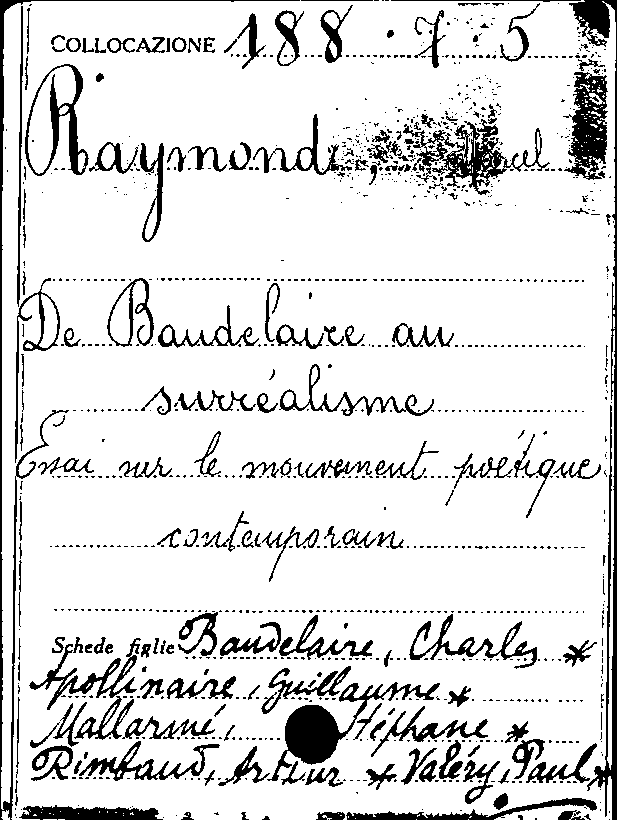 COLLOCAZIONE 188.7.5
Raymond, Marcel
De Baudelaire au
surréalisme
Essai sur le mouvement poétique
contemporain
Schede figlie Baudelaire, Charles *
Apollinaire, Guillaume *
Mallarmé, Stéphane *
Rimbaud, Arthur * Valéry, Paul *